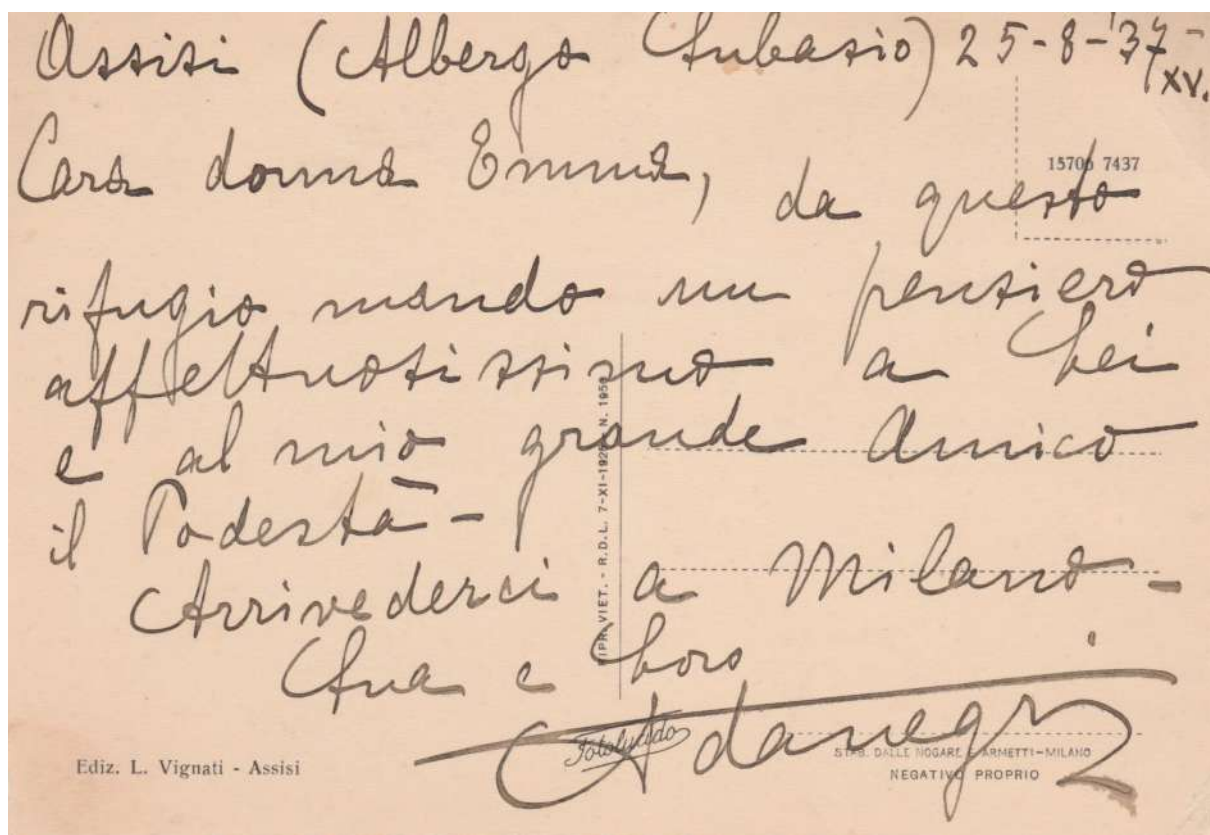 Assisi (Albergo Subasio) 25-8-'37-
XV.
Cara donna Emma, da questo
15706 7437
rifugio mando un pensiero
affettuosissimo a Lei
e al mio grande Amico
il Podestà -
Arrivederci a Milano -
Sua e Loro
Adanegri
RIPR. VIET. - R.D.L. 7-XI-1925 N. 1950
Fotolucido
Ediz. L. Vignati - Assisi
STAB. DALLE NOGARE E ARMETTI-MILANO
NEGATIVO PROPRIO